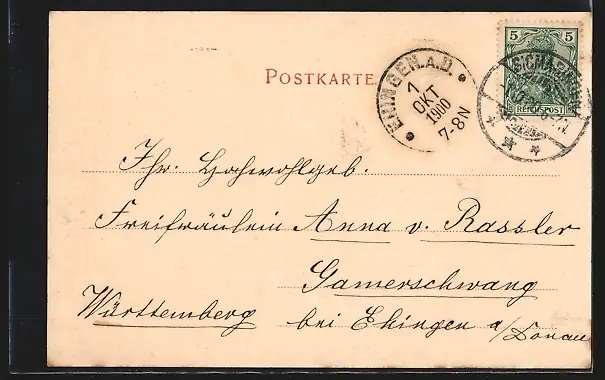 POSTKARTE.
EHINGEN.A.D.
1
OKT
1900
7-8N
5 5
REICHSPOST
SIGMARINGEN
Ihr. Hochwohlgeb.
Freifräulein Anna v. Rassler
Gamerschwang
Württemberg bei Ehingen a/Donau